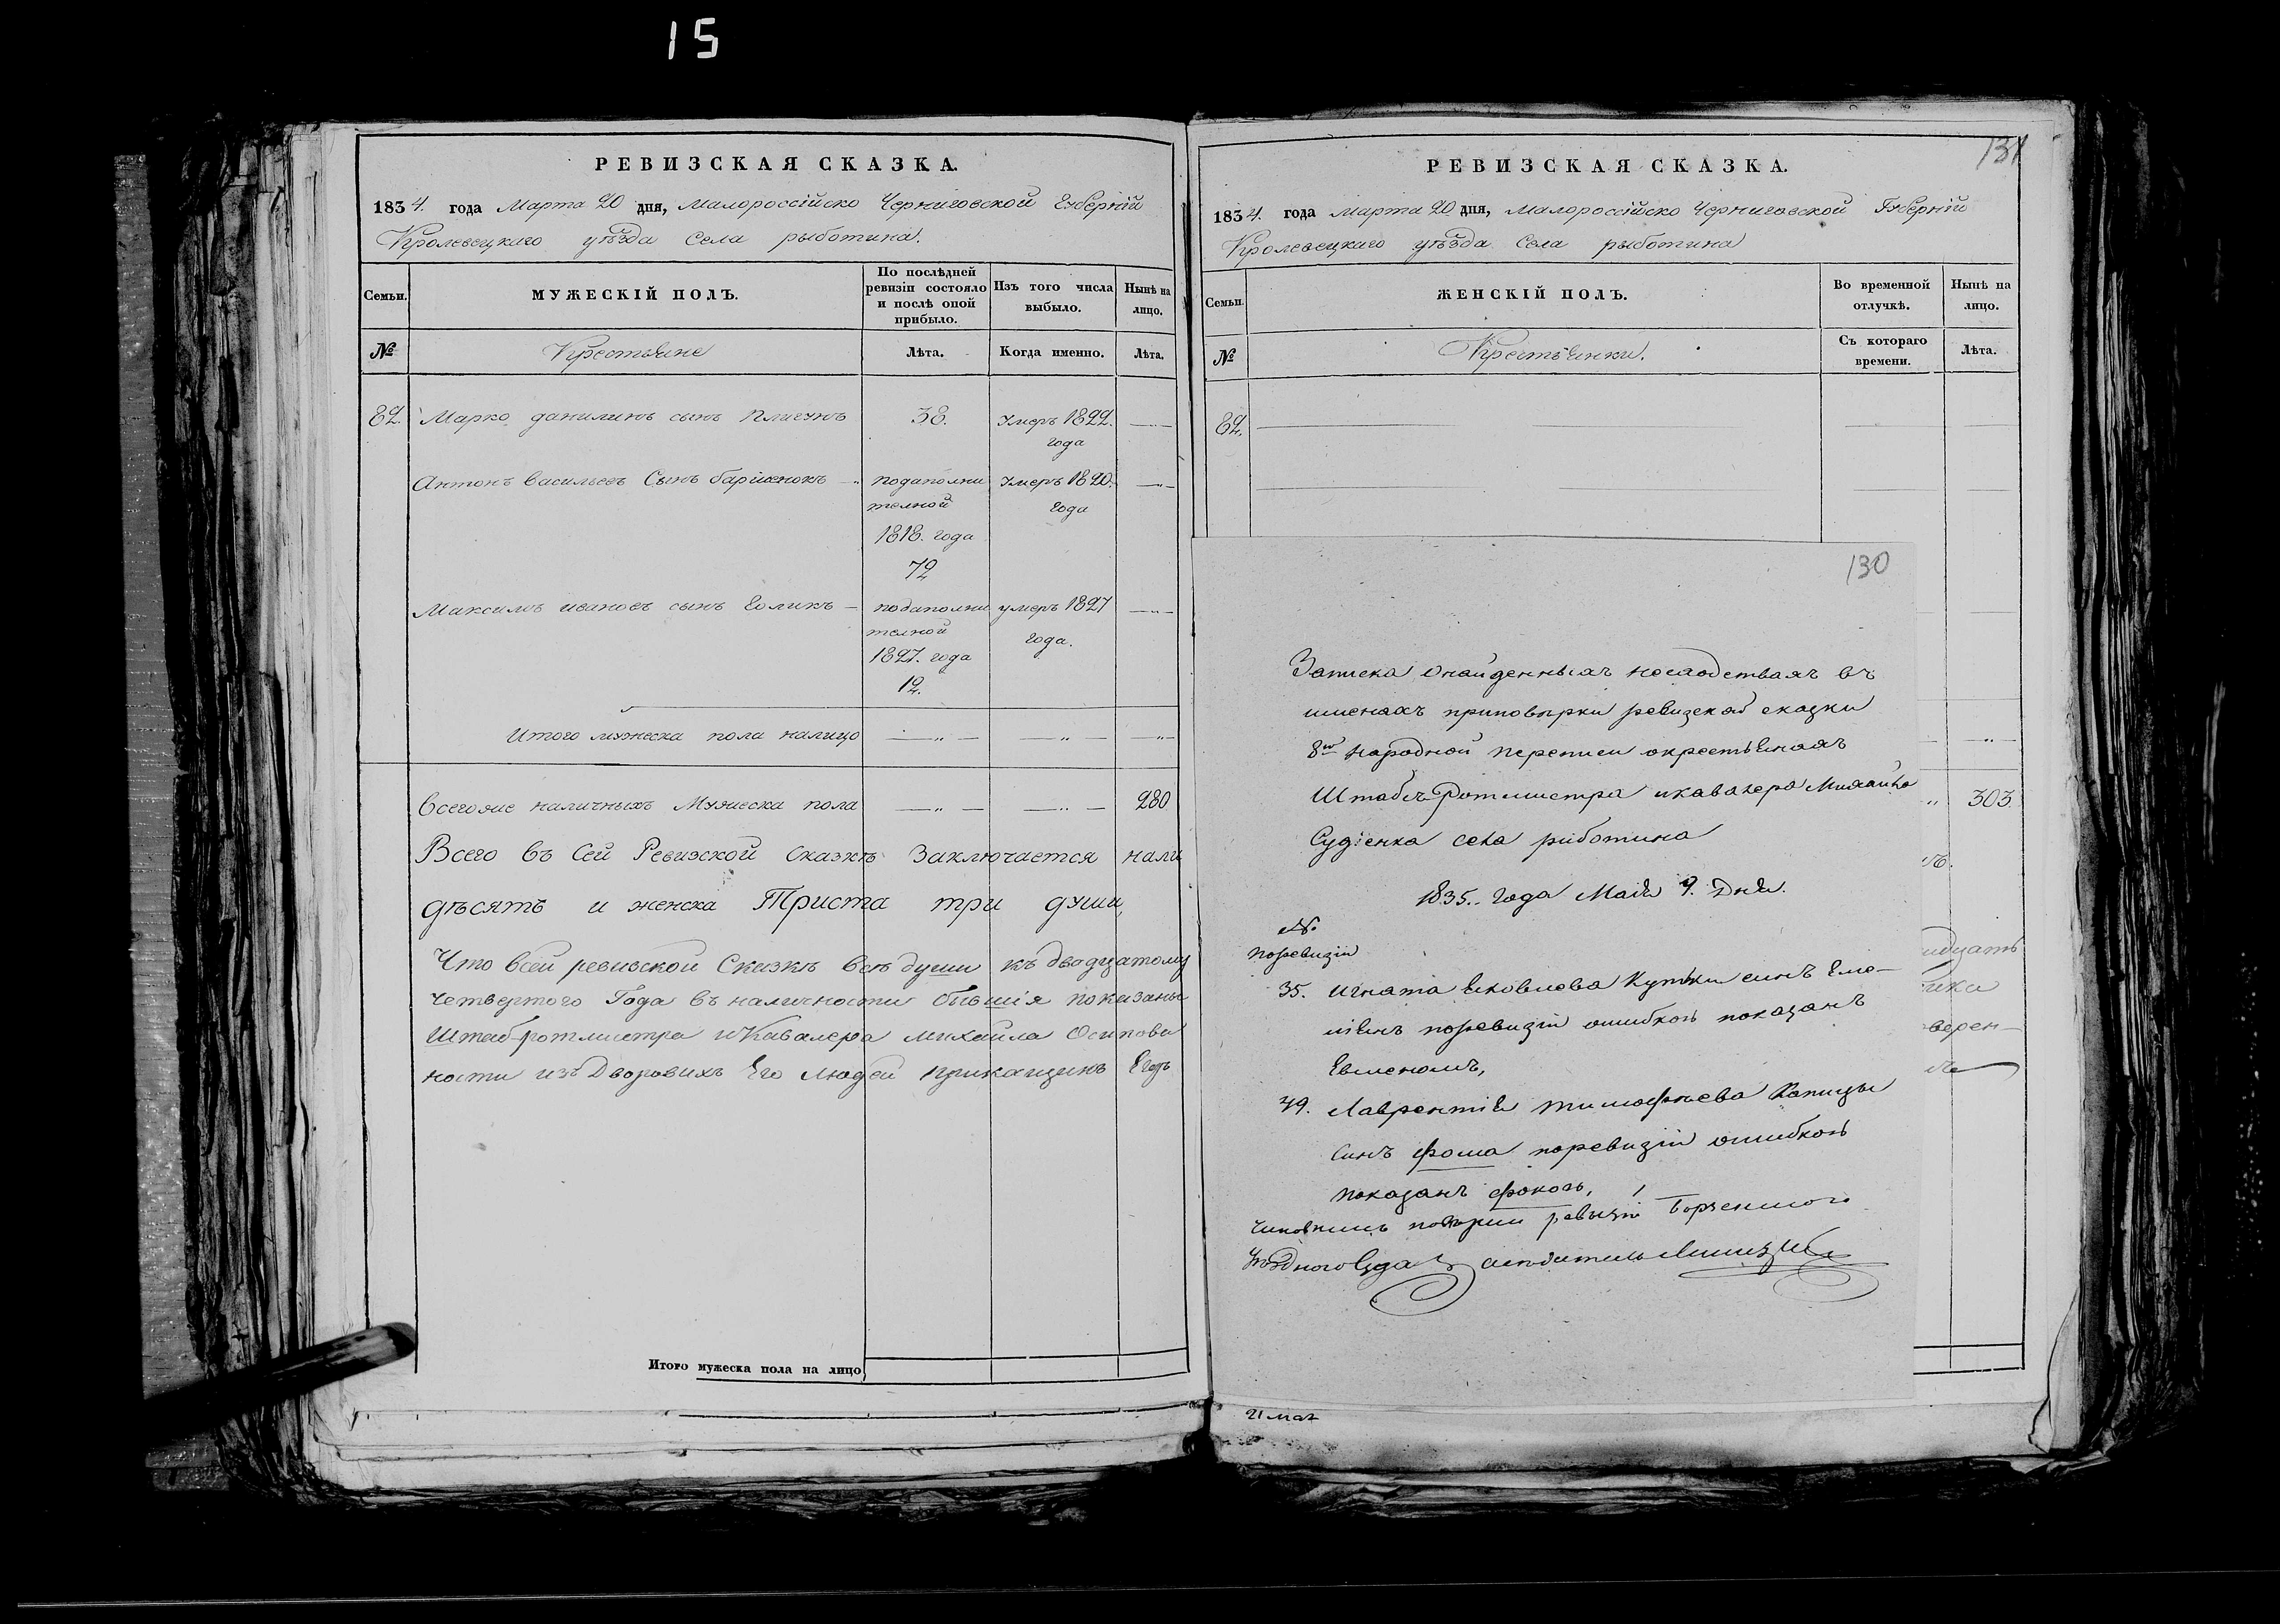 15
РЕВИЗСКАЯ СКАЗКА.
1834. года Марта 20 дня, Малороссійско Черниговской Губерніи
Кролевецкаго уѣзда Села рыботина.
Семьи.
МУЖЕСКІЙ ПОЛЪ.
По послѣдней ревизіи состояло и послѣ оной прибыло.
Изъ того числа выбыло.
Нынѣ на лицо.
№
Крестьяне
Лѣта.
Когда именно.
Лѣта.
82. Марко данилинъ сынъ Плигунъ 38. Умеръ 1822.
года
Антонъ васильевъ Сынъ подаполни Умеръ 1820.
телной года
1818. года
72
Максимъ ивановъ сынъ подаполни умеръ 1827
телной года.
1827. года
12.
Итого мужеска пола налицо
Всегоже наличныхъ Мужеска пола 280
Всего въ Сей Ревизской Сказкѣ Заключается нали
дѣсятъ и женска Триста три души,
Что всей ревизской Сказкѣ всѣ души къ двадцатому
четвертого Года въ наличности бывшія показаны
Штаб-ротмистра и Кавалера Михайла Осипова
ности изъ Дворовихъ Его Людей прикащикъ Егоръ
Итого мужеска пола на лицо
131
РЕВИЗСКАЯ СКАЗКА.
1834. года марта 20 дня, Малороссійско Черниговской Губерніи
Кролевецкаго уѣзда Села рыботина
Семьи.
ЖЕНСКІЙ ПОЛЪ.
Во временной отлучкѣ.
Нынѣ на лицо.
№
Крестьянки.
Съ котораго времени.
Лѣта.
82.
303.
идцать
верен-
130
Записка онайденныхъ въ
именахъ приповѣрки ревизской сказки
8й народной переписи окрестьянахъ
Штабъ Ротмистра икавалера Михайла
Судіенка села риботина
1835. года Мая 9. Дня.
№
поревизіи
35. Игната Яковлева синъ Еме-
ліянъ поревизіи ошибкою показанъ
Евменомъ,
49. Лаврентія тимофѣева Копицы
синъ фома поревизіи ошибкою
показанъ фокою,
повѣрки ревизіи Борзенского
21 мая